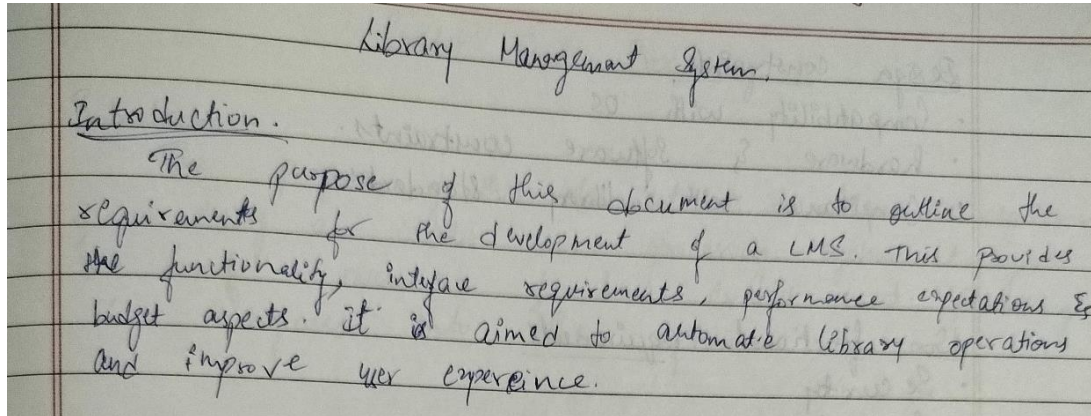 Library Management System.
Introduction.
The purpose of this document is to outline the
requirements for the development of a LMS. This provides
the functionality, interface requirements, performance expectations &
budget aspects. it is aimed to automate library operations
and improve user expereince.